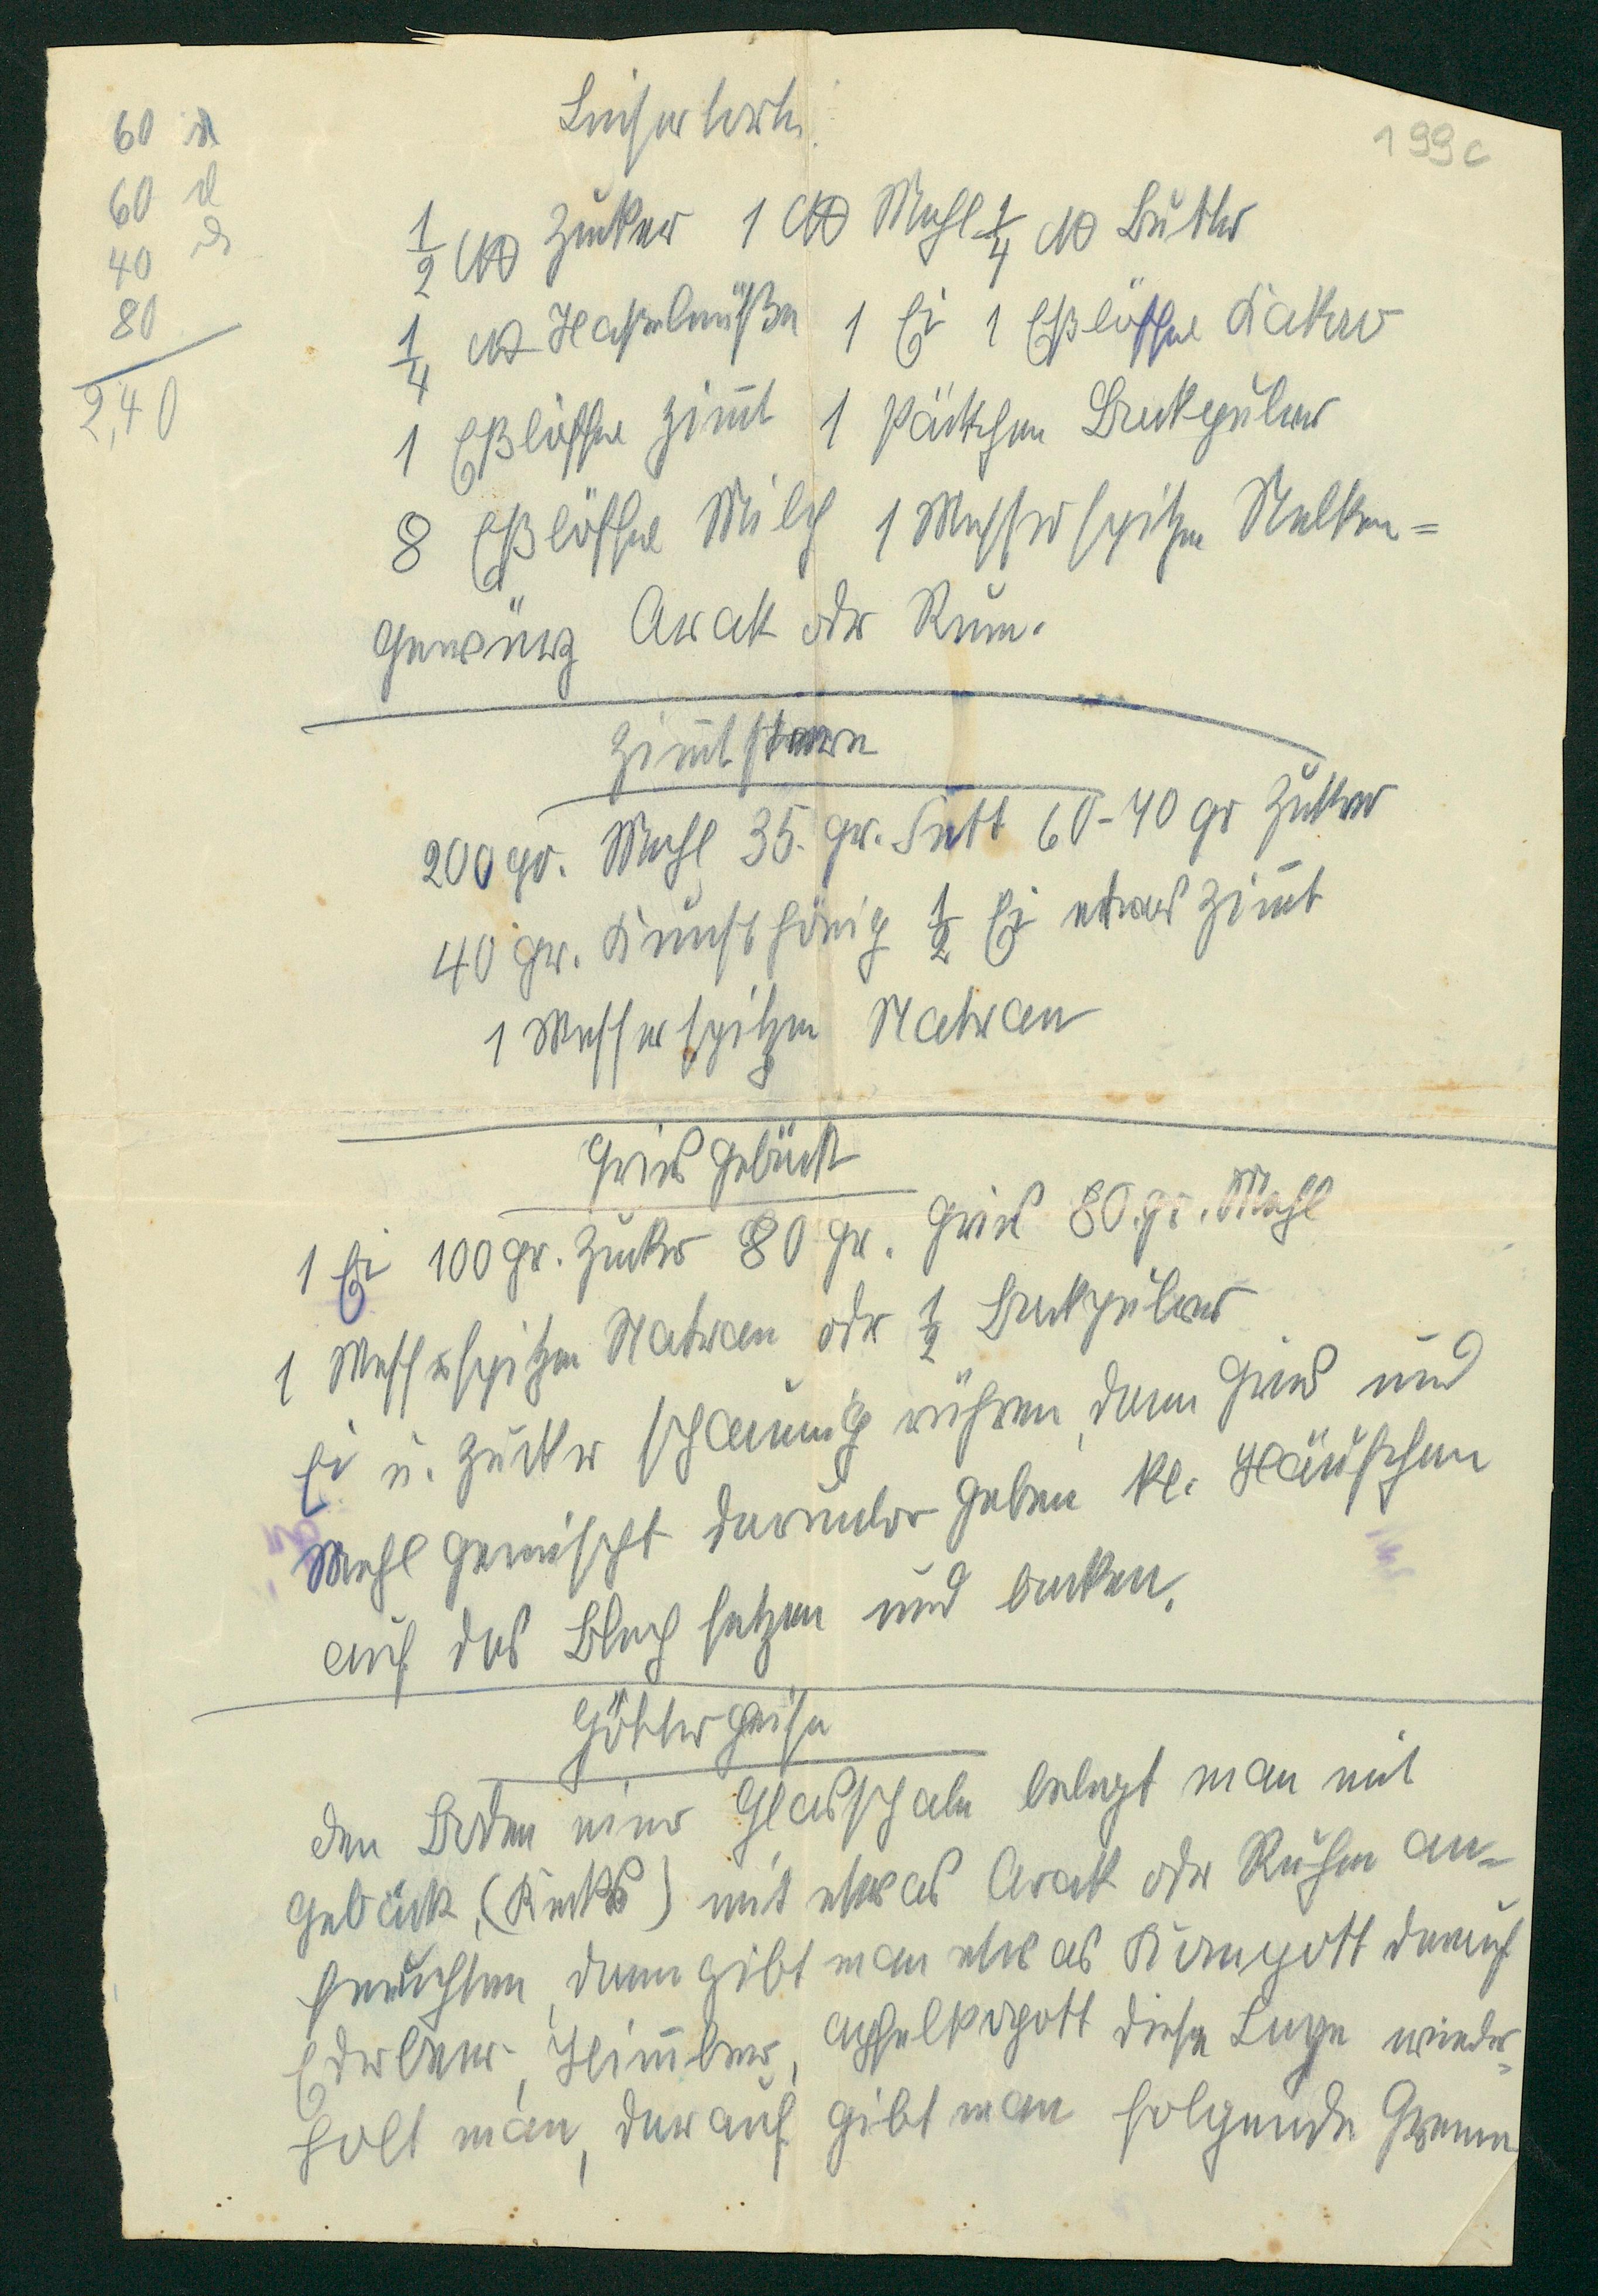 199c
60
60
40
80
2,40
Linsertorte
1/2 ℔ Zucker 1 ℔ Mehl 1/4 ℔ Butter
1/4 ℔ Haßelnüße 1 Ei 1 Eßlöffel Kakao
1 Eßlöffel Zim̅t 1 Päckchen Backpulver
8 Eßlöffel Milch 1 Messerspitze Nelken=
gewürz Arak oder Rum.
Zim̅tstern
200 gr. Mehl 35. gr. Fett 60-70 gr Zucker
40 gr. Kunsthönig 1/2 Ei etwas Zim̅t
1 Messerspitze Natran
Gries gebäck
1 Ei 100 gr. Zucker 80 gr. Gries 80. gr. Mehl
1 Messerspitze Natran oder 1/2 Backpulver
Ei u. Zucker schaumig rühren, dann Gries und
Mehl gemischt darunter geben kl. Häufchen
auf das Blech setzen und backen.
Götterspeise
den Boden einer Glasschale belegt man mit
Gebäck, (Kecks) mit etwas Arak oder Ruhm an-
feuchten, dann gibt man etwas Kompott darauf
Erdbeer, Him̅beer, Apfelkopott diese Lage wieder=
holt man, darauf gibt man folgende Creme